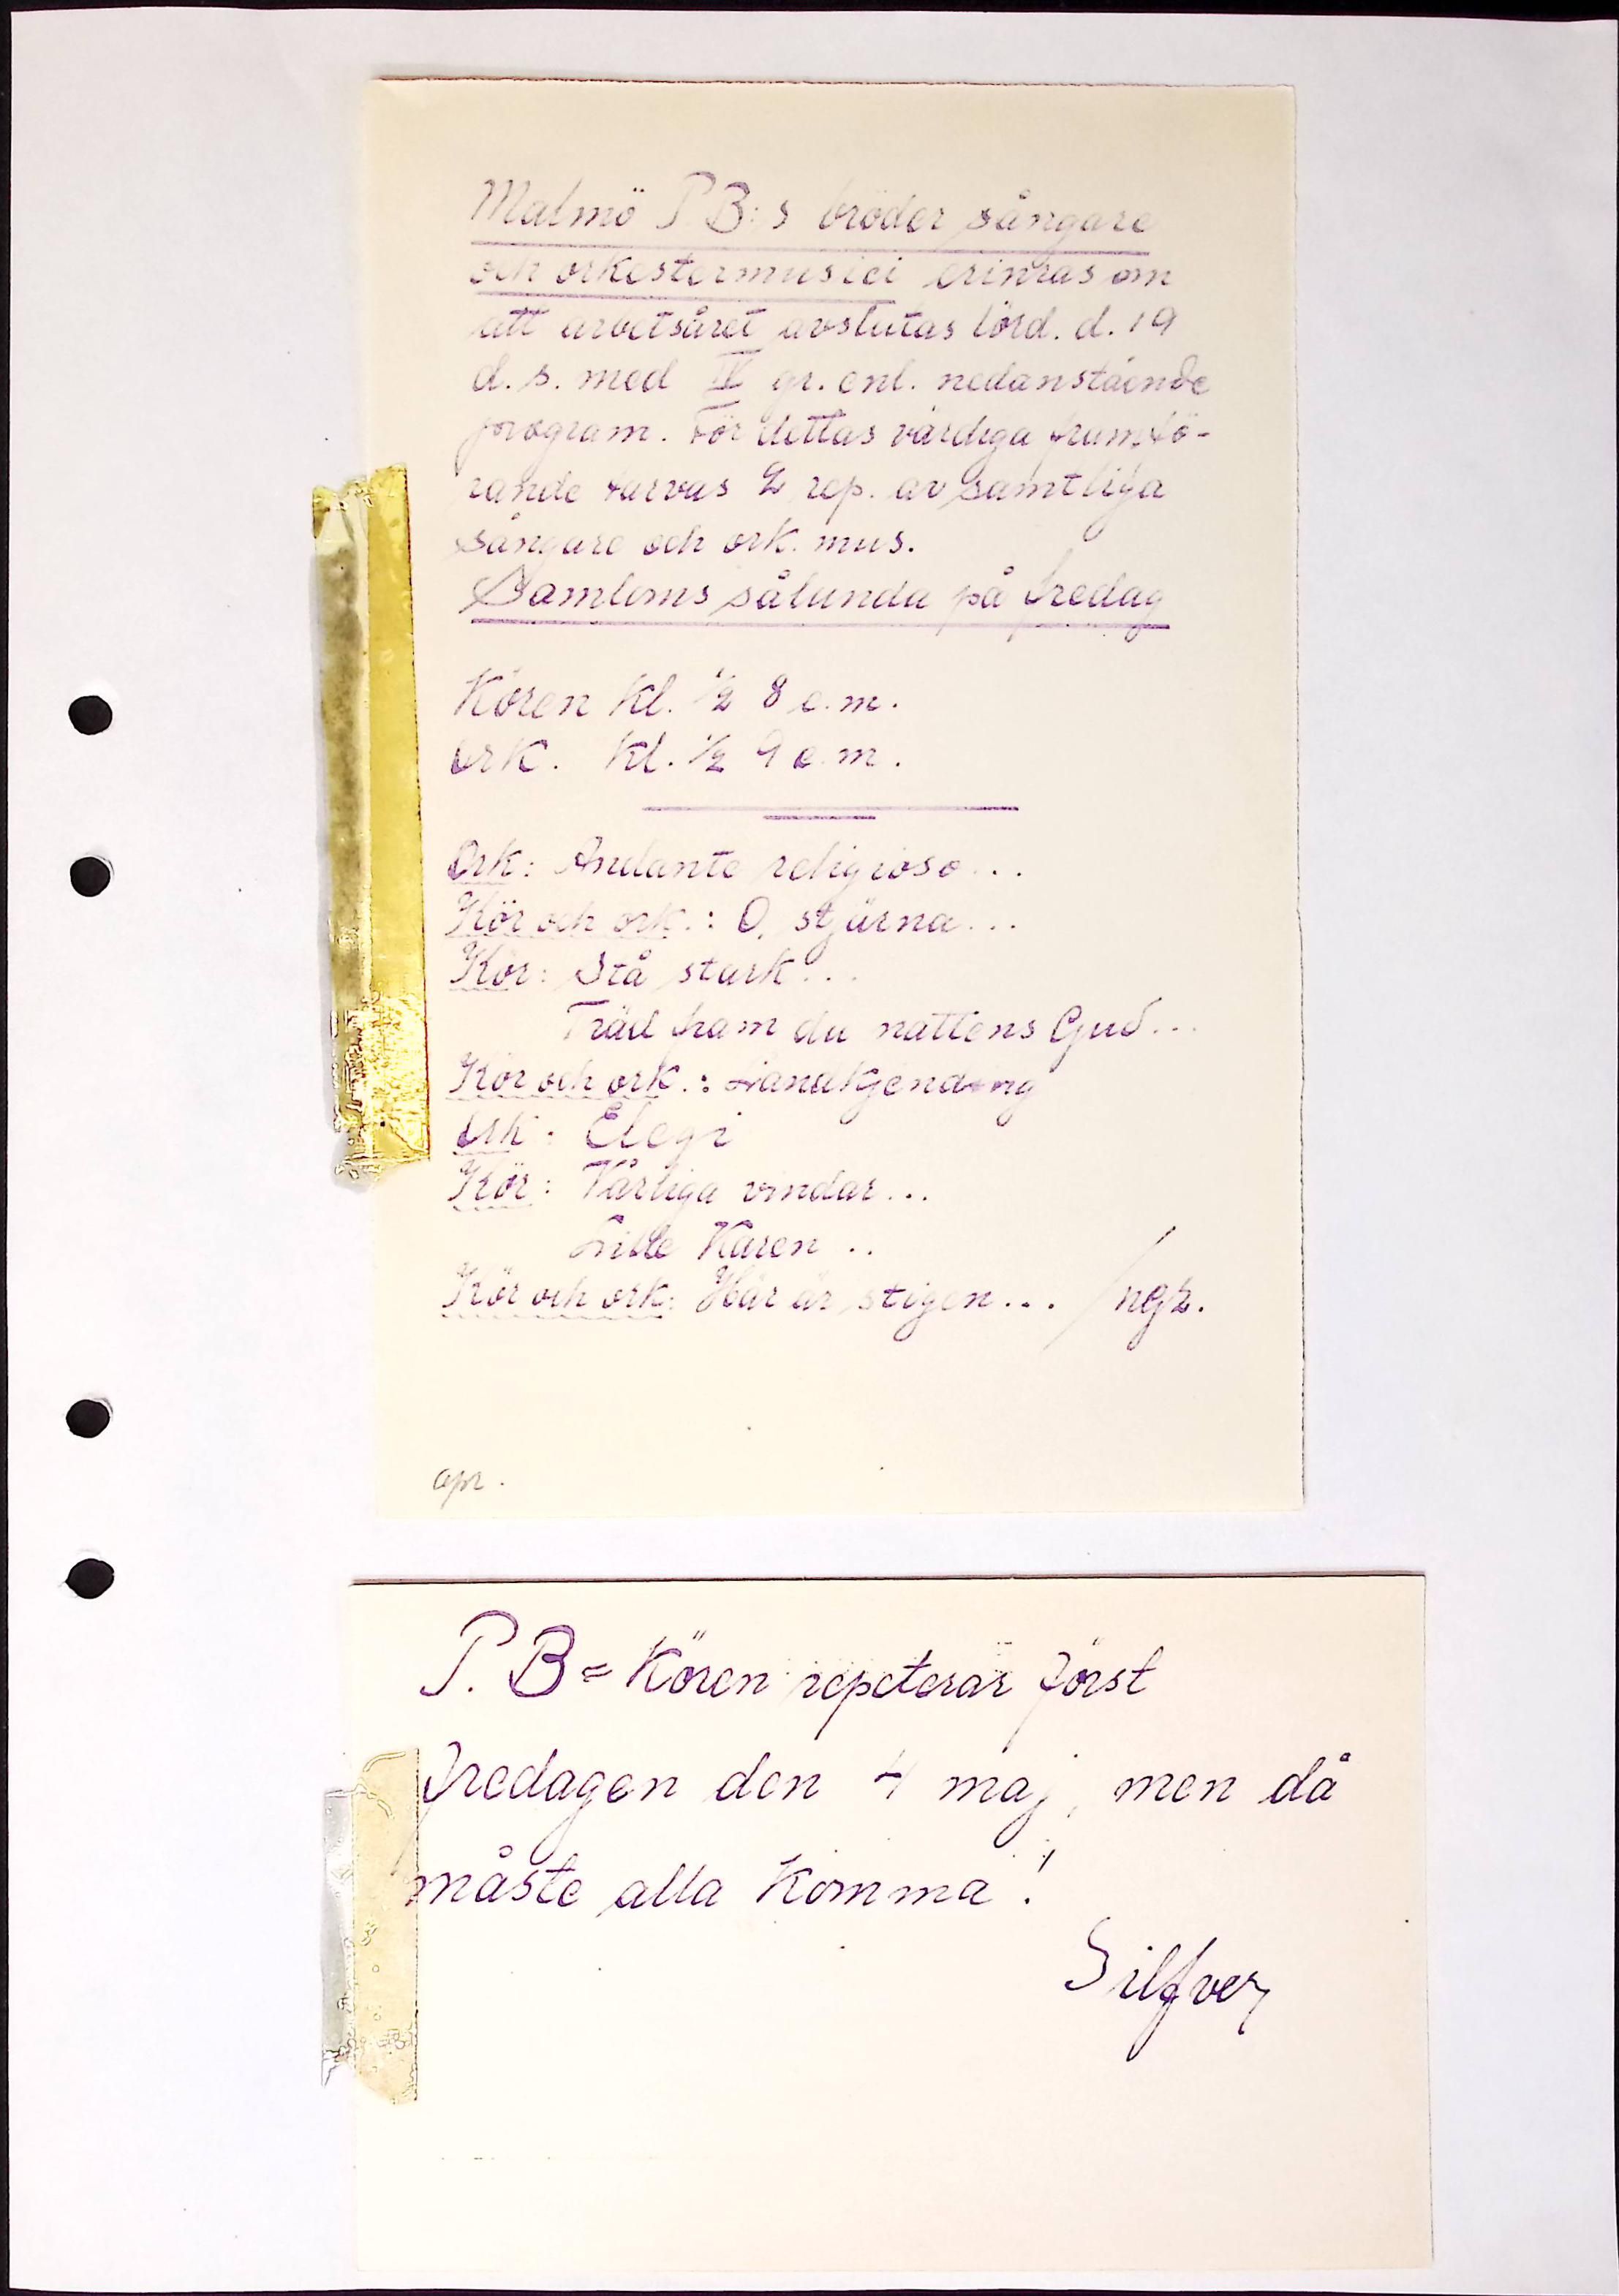 Malmö P.B:s bröder sångare
och orkestermusici erinras om
att arbetsåret avslutas lörd. d. 19
d.s. med IV gr. enl. nedanstående
program. För dettas värdiga framfö-
rande tarvas 2 rep. av samtliga
sångare och ork. mus.
Samloms sålunda på fredag
Kören kl. ½ 8 e.m.
Ork. kl. ½ 9 e.m.
Ork: Andante religioso...
Kör och ork.: O, stjärna...
Kör: Stå stark...
Träd fram du nattens Gud...
Kör och ork.: Landkjending
Ork: Elegi
Kör: Vårliga vindar...
Lille Karen..
Kör och ork: Här är stigen... /
apr.
P.B=Kören repeterar först
fredagen den 4 maj, men då
måste alla komma!
Silfver